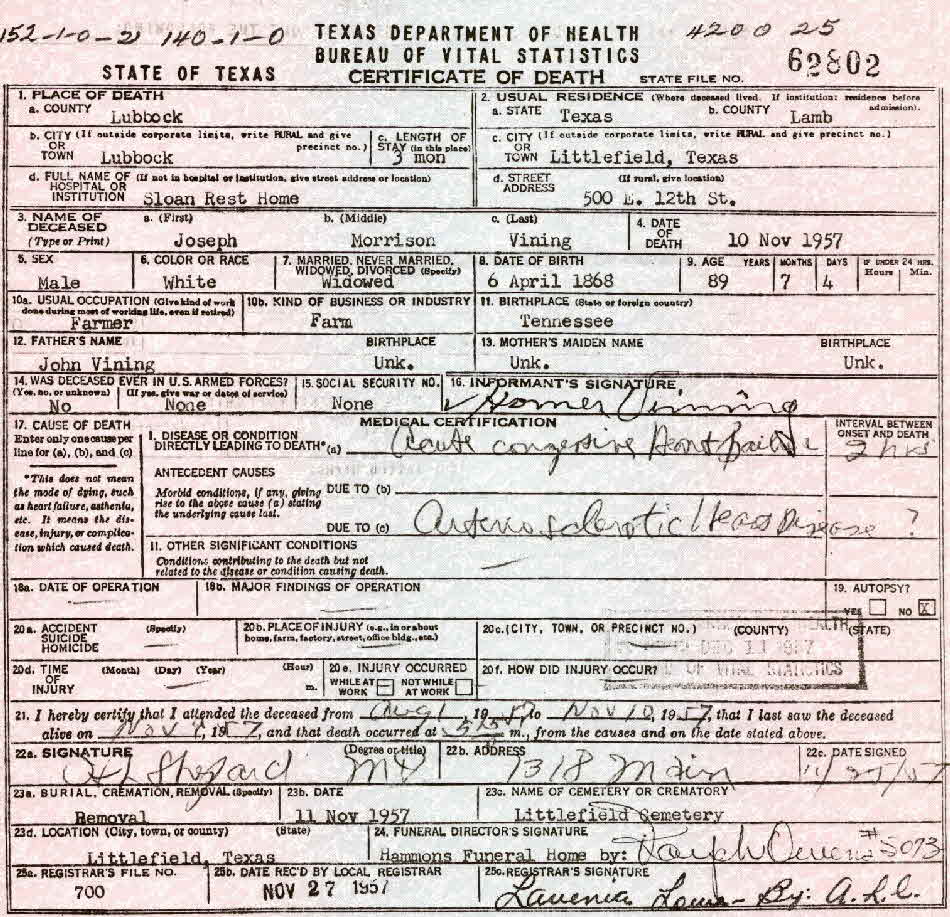 152-1-0-21 140-1-0 TEXAS DEPARTMENT OF HEALTH 4200 25
BUREAU OF VITAL STATISTICS
STATE OF TEXAS CERTIFICATE OF DEATH STATE FILE NO. 62802
1. PLACE OF DEATH
a. COUNTY
Lubbock
2. USUAL RESIDENCE (Where deceased lived. If institution: residence before admission).
a. STATE b. COUNTY
Texas Lamb
b. CITY (If outside corporate limits, write RURAL and give
OR precinct no.)
TOWN Lubbock
c. LENGTH OF
STAY (in this place)
3 mon
c. CITY (If outside corporate limits, write RURAL and give precinct no.)
OR
TOWN Littlefield, Texas
d. FULL NAME OF (If not in hospital or institution, give street address or location)
HOSPITAL OR
INSTITUTION Sloan Rest Home
d. STREET (If rural, give location)
ADDRESS 500 E. 12th St.
3. NAME OF DECEASED
(Type or Print)
a. (First) b. (Middle) c. (Last)
Joseph Morrison Vining
4. DATE
OF
DEATH 10 Nov 1957
5. SEX
Male
6. COLOR OR RACE
White
7. MARRIED, NEVER MARRIED,
WIDOWED, DIVORCED (Specify)
Widowed
8. DATE OF BIRTH
6 April 1868
9. AGE YEARS MONTHS DAYS IF UNDER 24 HRS.
Hours Min.
89 7 4
10a. USUAL OCCUPATION (Give kind of work
done during most of working life, even if retired)
Farmer
10b. KIND OF BUSINESS OR INDUSTRY
Farm
11. BIRTHPLACE (State or foreign country)
Tennessee
12. FATHER'S NAME BIRTHPLACE
John Vining Unk.
13. MOTHER'S MAIDEN NAME BIRTHPLACE
Unk. Unk.
14. WAS DECEASED EVER IN U.S. ARMED FORCES?
(Yes, no, or unknown) (If yes, give war or dates of service)
No None
15. SOCIAL SECURITY NO.
None
16. INFORMANT'S SIGNATURE
Homer Vining
17. CAUSE OF DEATH
Enter only one cause per
line for (a), (b), and (c)
*This does not mean
the mode of dying, such
as heart failure, asthenia,
etc. It means the dis-
ease, injury, or complica-
tion which caused death.
MEDICAL CERTIFICATION
INTERVAL BETWEEN
ONSET AND DEATH
I. DISEASE OR CONDITION
DIRECTLY LEADING TO DEATH* (a) Acute congestive Heart failure 2 hrs
ANTECEDENT CAUSES
Morbid conditions, if any, giving
rise to the above cause (a) stating
the underlying cause last.
DUE TO (b)
DUE TO (c) Arteriosclerotic Heart Disease ?
II. OTHER SIGNIFICANT CONDITIONS
Conditions contributing to the death but not
related to the disease or condition causing death.
18a. DATE OF OPERATION
18b. MAJOR FINDINGS OF OPERATION
19. AUTOPSY?
YES NO X
20a. ACCIDENT (Specify)
SUICIDE
HOMICIDE
20b. PLACE OF INJURY (e.g., in or about
home, farm, factory, street, office bldg., etc.)
20c. (CITY, TOWN, OR PRECINCT NO.) (COUNTY) (STATE)
20d. TIME (Month) (Day) (Year) (Hour)
OF
INJURY m.
20e. INJURY OCCURRED
WHILE AT WORK NOT WHILE AT WORK
20f. HOW DID INJURY OCCUR?
DEC 11 1957
OF VITAL STATISTICS
21. I hereby certify that I attended the deceased from Aug 1, 1957 to Nov 10, 1957, that I last saw the deceased
alive on Nov 9, 1957, and that death occurred at m., from the causes and on the date stated above.
22a. SIGNATURE (Degree or title)
Shepard MD
22b. ADDRESS
1318 Main
22c. DATE SIGNED
23a. BURIAL, CREMATION, REMOVAL (Specify)
Removal
23b. DATE
11 Nov 1957
23c. NAME OF CEMETERY OR CREMATORY
Littlefield Cemetery
23d. LOCATION (City, town, or county) (State)
Littlefield, Texas
24. FUNERAL DIRECTOR'S SIGNATURE
Hammons Funeral Home by: Ralph Owens #5073
25a. REGISTRAR'S FILE NO.
700
25b. DATE REC'D BY LOCAL REGISTRAR
NOV 27 1957
25c. REGISTRAR'S SIGNATURE
Lavenia Lowe - By: A.L.C.